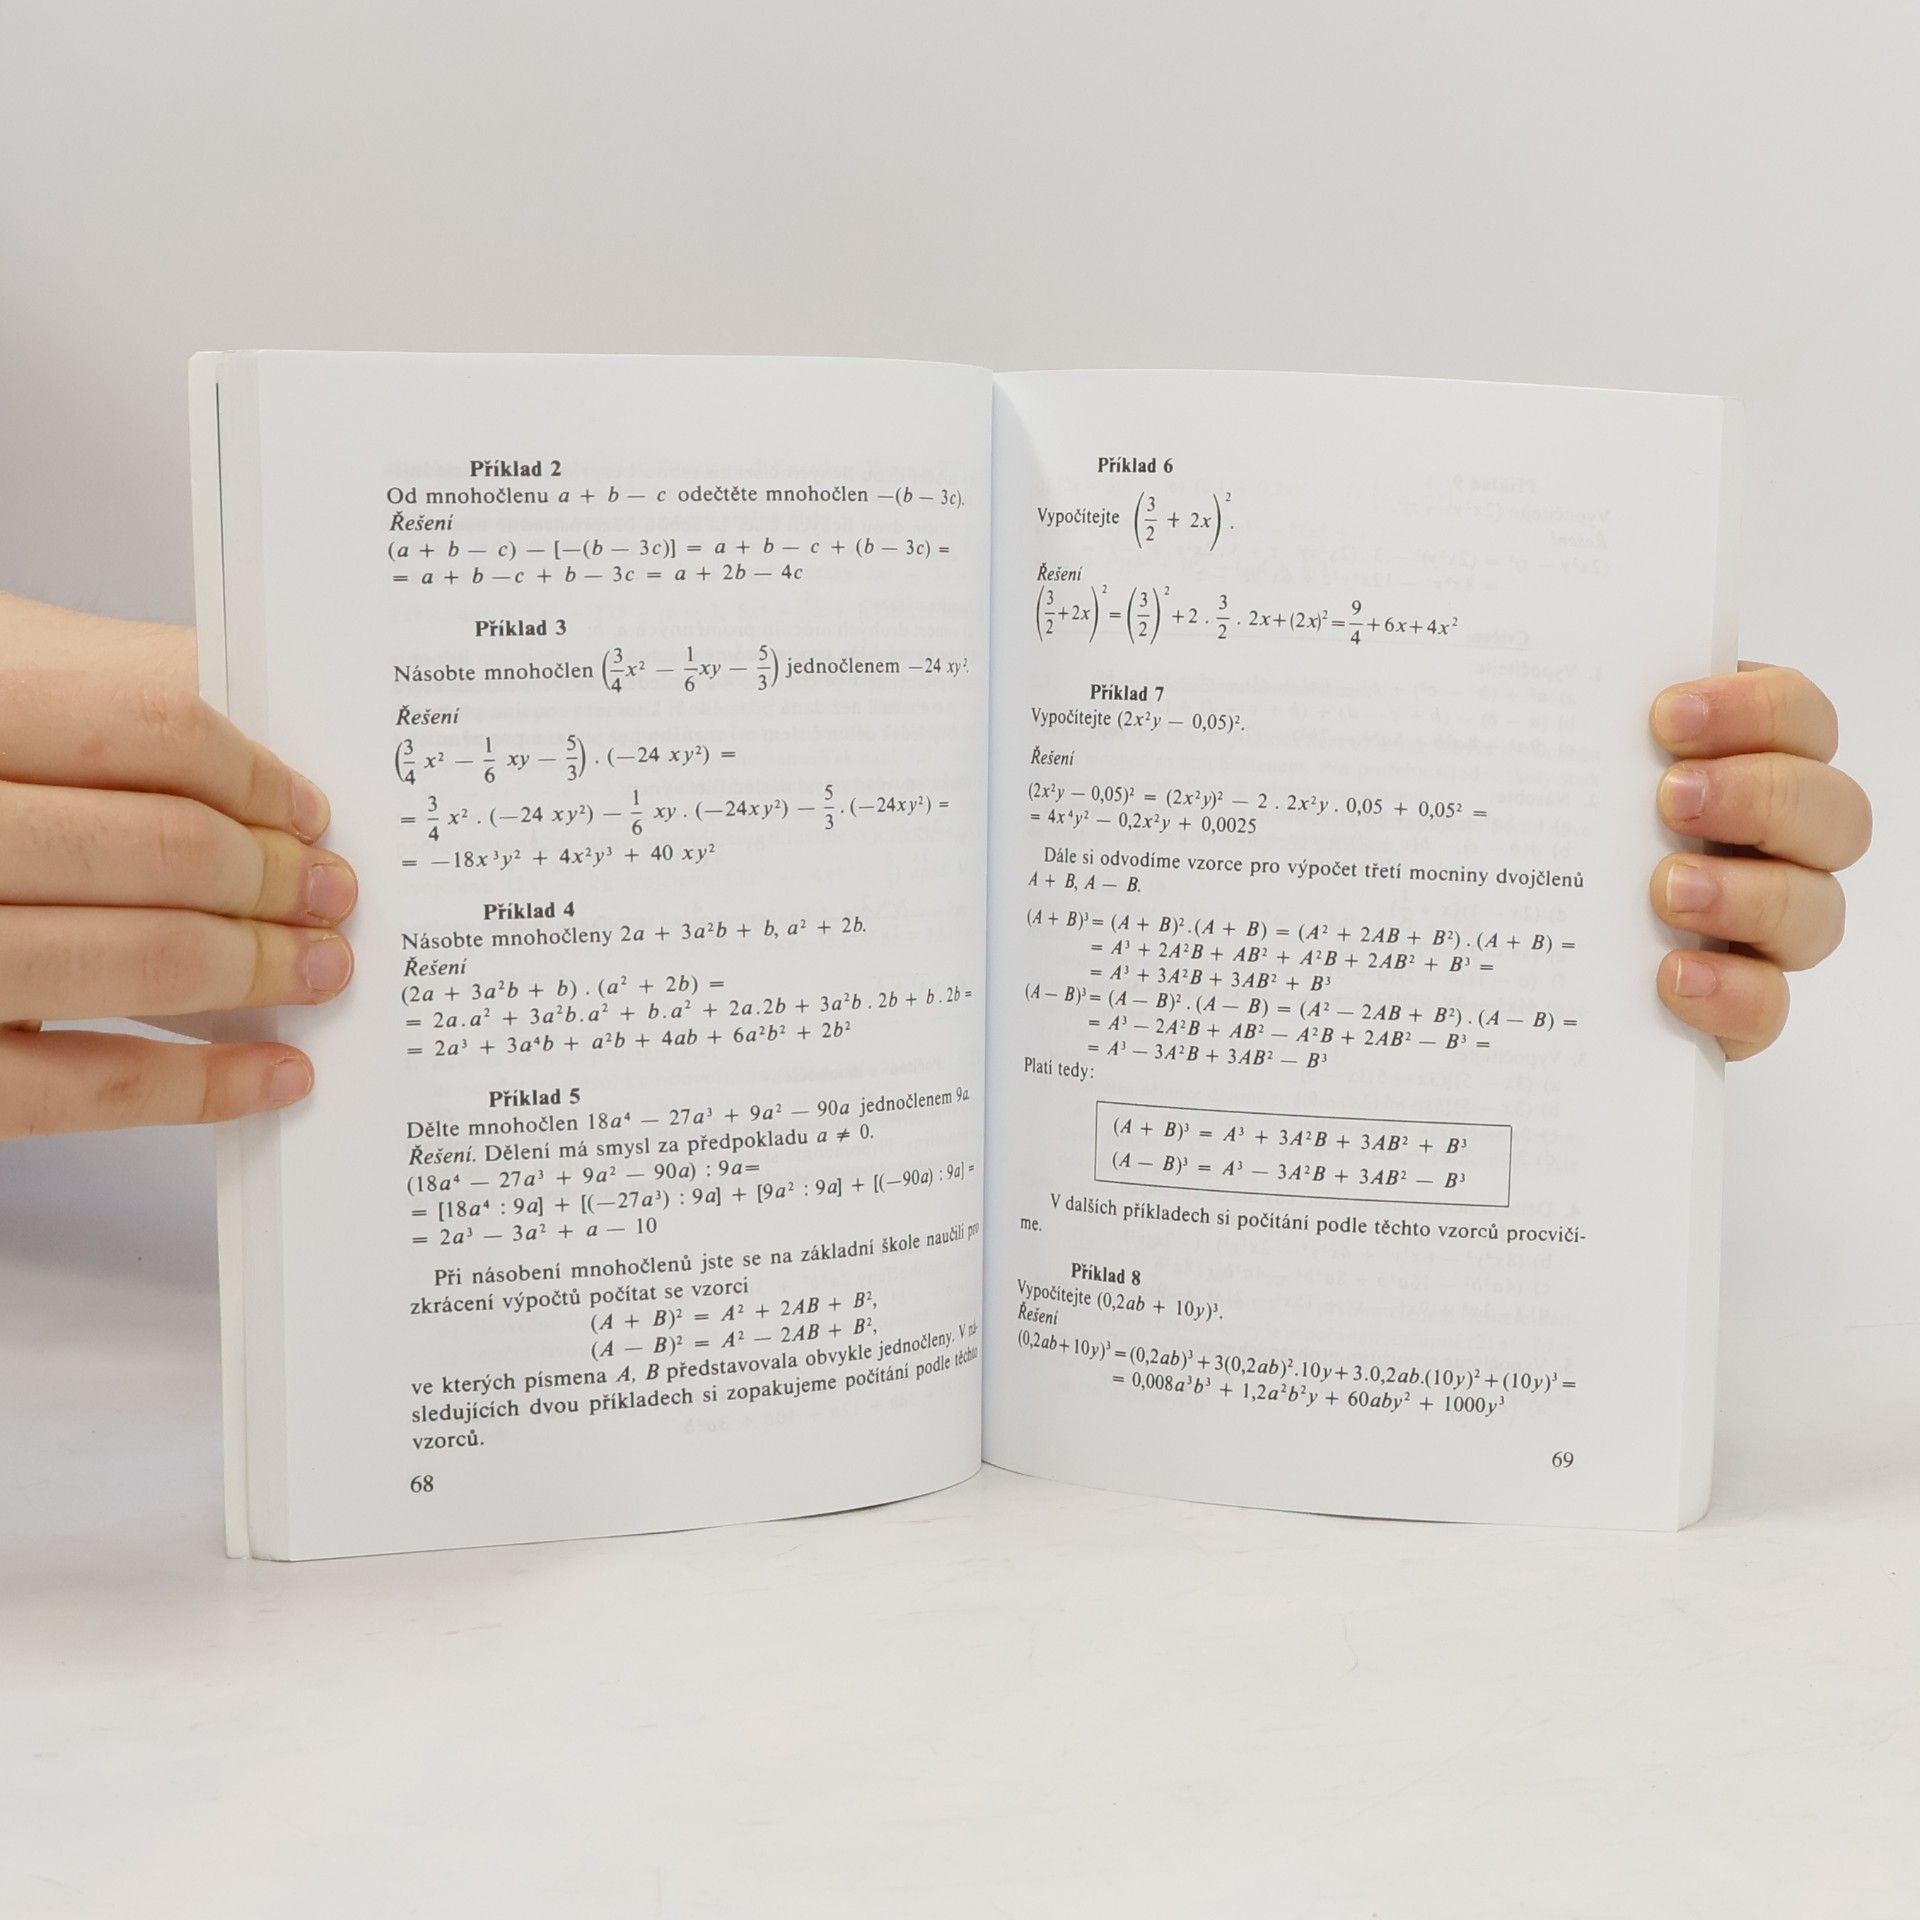 Příklad 2
Od mnohočlenu a + b — c odečtěte mnohočlen —(b — 3c).
Řešení
(a + b — c) — [—(b — 3c)] = a + b — c + (b — 3c) =
= a + b —c + b — 3c = a + 2b — 4c
Příklad 3
Násobte mnohočlen (3/4 x² — 1/6 xy — 5/3) jednočlenem —24 xy².
Řešení
(3/4 x² — 1/6 xy — 5/3) . (—24 xy²) =
= 3/4 x² . (—24 xy²) — 1/6 xy . (—24xy²) — 5/3 . (—24xy²) =
= —18x³y² + 4x²y³ + 40 xy²
Příklad 4
Násobte mnohočleny 2a + 3a²b + b, a² + 2b.
Řešení
(2a + 3a²b + b) . (a² + 2b) =
= 2a.a² + 3a²b.a² + b.a² + 2a.2b + 3a²b . 2b + b . 2b =
= 2a³ + 3a⁴b + a²b + 4ab + 6a²b² + 2b²
Příklad 5
Dělte mnohočlen 18a⁴ — 27a³ + 9a² — 90a jednočlenem 9a.
Řešení. Dělení má smysl za předpokladu a ≠ 0.
(18a⁴ — 27a³ + 9a² — 90a) : 9a=
= [18a⁴ : 9a] + [(—27a³) : 9a] + [9a² : 9a] + [(—90a) : 9a] =
= 2a³ — 3a² + a — 10
Při násobení mnohočlenů jste se na základní škole naučili pro
zkrácení výpočtů počítat se vzorci
(A + B)² = A² + 2AB + B²,
(A — B)² = A² — 2AB + B²,
ve kterých písmena A, B představovala obvykle jednočleny. V ná-
sledujících dvou příkladech si zopakujeme počítání podle těchto
vzorců.
68
Příklad 6
Vypočítejte (3/2 + 2x)².
Řešení
(3/2+2x)²=(3/2)²+2 . 3/2 . 2x+(2x)²=9/4+6x+4x²
Příklad 7
Vypočítejte (2x²y — 0,05)².
Řešení
(2x²y — 0,05)² = (2x²y)² — 2 . 2x²y . 0,05 + 0,05² =
= 4x⁴y² — 0,2x²y + 0,0025
Dále si odvodíme vzorce pro výpočet třetí mocniny dvojčlenů
A + B, A — B.
(A + B)³= (A + B)².(A + B) = (A² + 2AB + B²) . (A + B) =
= A³ + 2A²B + AB² + A²B + 2AB² + B³ =
= A³ + 3A²B + 3AB² + B³
(A — B)³= (A — B)² . (A — B) = (A² — 2AB + B²) . (A — B) =
= A³ — 2A²B + AB² — A²B + 2AB² — B³ =
= A³ — 3A²B + 3AB² — B³
Platí tedy:
(A + B)³ = A³ + 3A²B + 3AB² + B³
(A — B)³ = A³ — 3A²B + 3AB² — B³
V dalších příkladech si počítání podle těchto vzorců procvičí-
me.
Příklad 8
Vypočítejte (0,2ab + 10y)³.
Řešení
(0,2ab+10y)³=(0,2ab)³+3(0,2ab)².10y+3.0,2ab.(10y)²+(10y)³=
= 0,008a³b³ + 1,2a²b²y + 60aby² + 1000y³
69